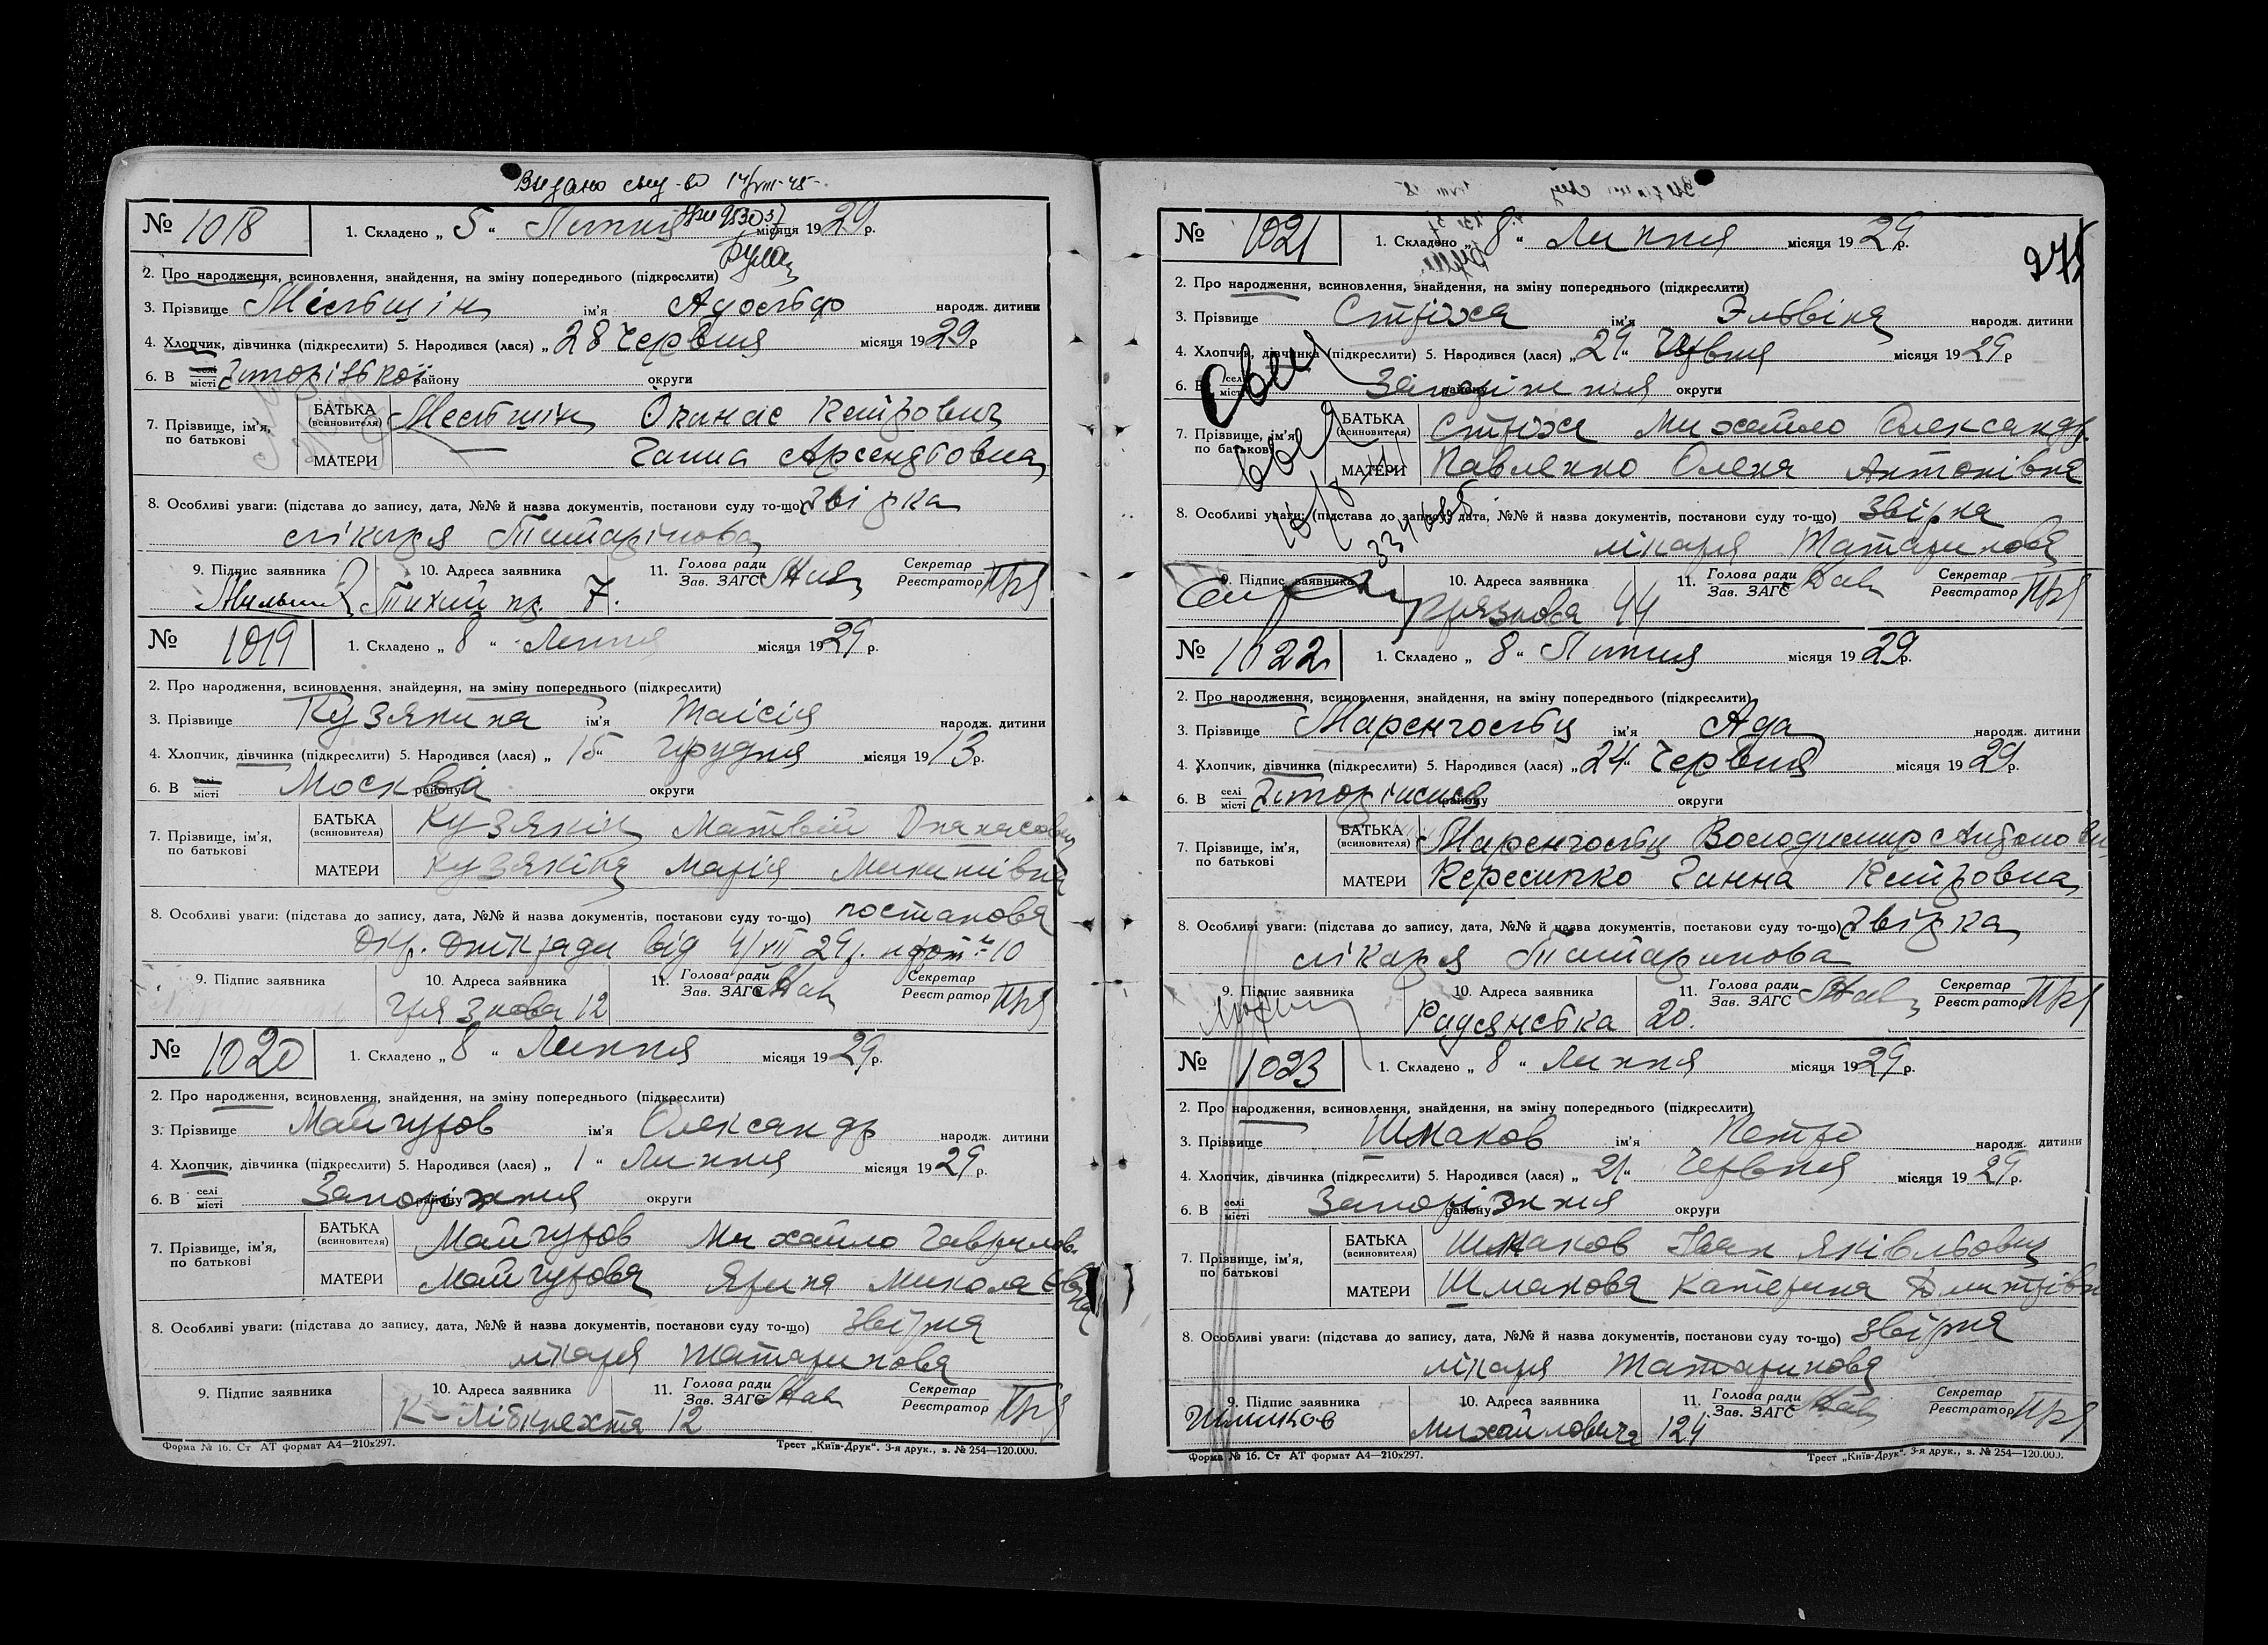 Видано свид-во 14/VIII-45
№ 1018 1. Складено „ 5 “ Липня місяця 1929 р.
2. Про народження, всиновлення, знайдення, на зміну попереднього (підкреслити)
3. Прізвище Мільшін ім'я Адольф народж. дитини
4. Хлопчик, дівчинка (підкреслити) 5. Народився (лася) „ 28 Червня місяця 1929 р
6. В селі місті району округи
7. Прізвище, ім'я, по батькові БАТЬКА (всиновителя) Мельшін Опанас Петрович
МАТЕРИ — Ганна Арсентовна
8. Особливі уваги: (підстава до запису, дата, №№ й назва документів, постанови суду то-що) Звірка
лікаря Татарінова
9. Підпис заявника 10. Адреса заявника 11. Голова ради Зав. ЗАГС Секретар Реєстратор
Тихий 7.
№ 1019 1. Складено „ 8 “ Липня місяця 1929 р.
2. Про народження, всиновлення, знайдення, на зміну попереднього (підкреслити)
3. Прізвище Кузякина ім'я Таісія народж. дитини
4. Хлопчик, дівчинка (підкреслити) 5. Народився (лася) „ 15 “ грудня місяця 1913 р.
6. В селі місті Москва району округи
7. Прізвище, ім'я, по батькові БАТЬКА (всиновителя) Кузякін Матвій Опанасович
МАТЕРИ Кузякіна Марія Микитівна
8. Особливі уваги: (підстава до запису, дата, №№ й назва документів, постанови суду то-що) постанова
від 4/VII 29 р. прот. № 10
9. Підпис заявника 10. Адреса заявника 11. Голова ради Зав. ЗАГС Секретар Реєстратор
Грязнова 12
№ 1020 1. Складено „ 8 “ Липня місяця 1929 р.
2. Про народження, всиновлення, знайдення, на зміну попереднього (підкреслити)
3. Прізвище Майгуров ім'я Олександр народж. дитини
4. Хлопчик, дівчинка (підкреслити) 5. Народився (лася) „ 1 “ Липня місяця 1929 р.
6. В селі місті Запоріжжя району округи
7. Прізвище, ім'я, по батькові БАТЬКА (всиновителя) Майгуров Михайло Гаврилов.
МАТЕРИ Майгурова Ярина Миколаєвна
8. Особливі уваги: (підстава до запису, дата, №№ й назва документів, постанови суду то-що) Звірка
лікаря Татаринова
9. Підпис заявника 10. Адреса заявника 11. Голова ради Зав. ЗАГС Секретар Реєстратор
К-Лібкнехта 12
Форма № 16. Ст АТ формат А4—210х297. Трест „Київ-Друк“. 3-я друк., з. № 254—120.000.
275
№ 1021 1. Складено „ 8 “ Липня місяця 1929 р.
2. Про народження, всиновлення, знайдення, на зміну попереднього (підкреслити)
3. Прізвище Стріха ім'я Эльвіна народж. дитини
4. Хлопчик, дівчинка (підкреслити) 5. Народився (лася) „ 29 “ Червня місяця 1929 р
6. В селі місті Запоріжжя району округи
7. Прізвище, ім'я, по батькові БАТЬКА (всиновителя) Стріха Михайло Олександр.
МАТЕРИ Павленко Олена Антонівна
8. Особливі уваги: (підстава до запису, дата, №№ й назва документів, постанови суду то-що) Звірка
лікаря Татаринова
9. Підпис заявника 10. Адреса заявника 11. Голова ради Зав. ЗАГС Секретар Реєстратор
Грязнова 44
№ 1022 1. Складено „ 8 “ Липня місяця 1929 р.
2. Про народження, всиновлення, знайдення, на зміну попереднього (підкреслити)
3. Прізвище Маренгольц ім'я Ада народж. дитини
4. Хлопчик, дівчинка (підкреслити) 5. Народився (лася) „ 24 “ Червня місяця 1929 р.
6. В селі місті району округи
7. Прізвище, ім'я, по батькові БАТЬКА (всиновителя) Маренгольц Володимир
МАТЕРИ Ганна Петровна
8. Особливі уваги: (підстава до запису, дата, №№ й назва документів, постакови суду то-що) Звірка
лікаря Татаринова
9. Підпис заявника 10. Адреса заявника 11. Голова ради Зав. ЗАГС Секретар Реєстратор
Радянська 20.
№ 1023 1. Складено „ 8 “ Липня місяця 1929 р.
2. Про народження, всиновлення, знайдення, на зміну попереднього (підкреслити)
3. Прізвище Шмаков ім'я Петро народж. дитини
4. Хлопчик, дівчинка (підкреслити) 5. Народився (лася) „ 21 “ Червня місяця 1929 р.
6. В селі місті Запоріжжя району округи
7. Прізвище, ім'я, по батькові БАТЬКА (всиновителя) Шмаков Іван Яківльович
МАТЕРИ Шмакова Катерина Дмитрівн
8. Особливі уваги: (підстава до запису, дата, №№ й назва документів, постанови суду то-що) Звірка
лікаря Татаринова
9. Підпис заявника 10. Адреса заявника 11. Голова ради Зав. ЗАГС Секретар Реєстратор
Шмаков Михайловича 124
Форма № 16. Ст АТ формат А4—210х297. Трест „Київ-Друк“. 3-я друк., з. № 254—120.000.